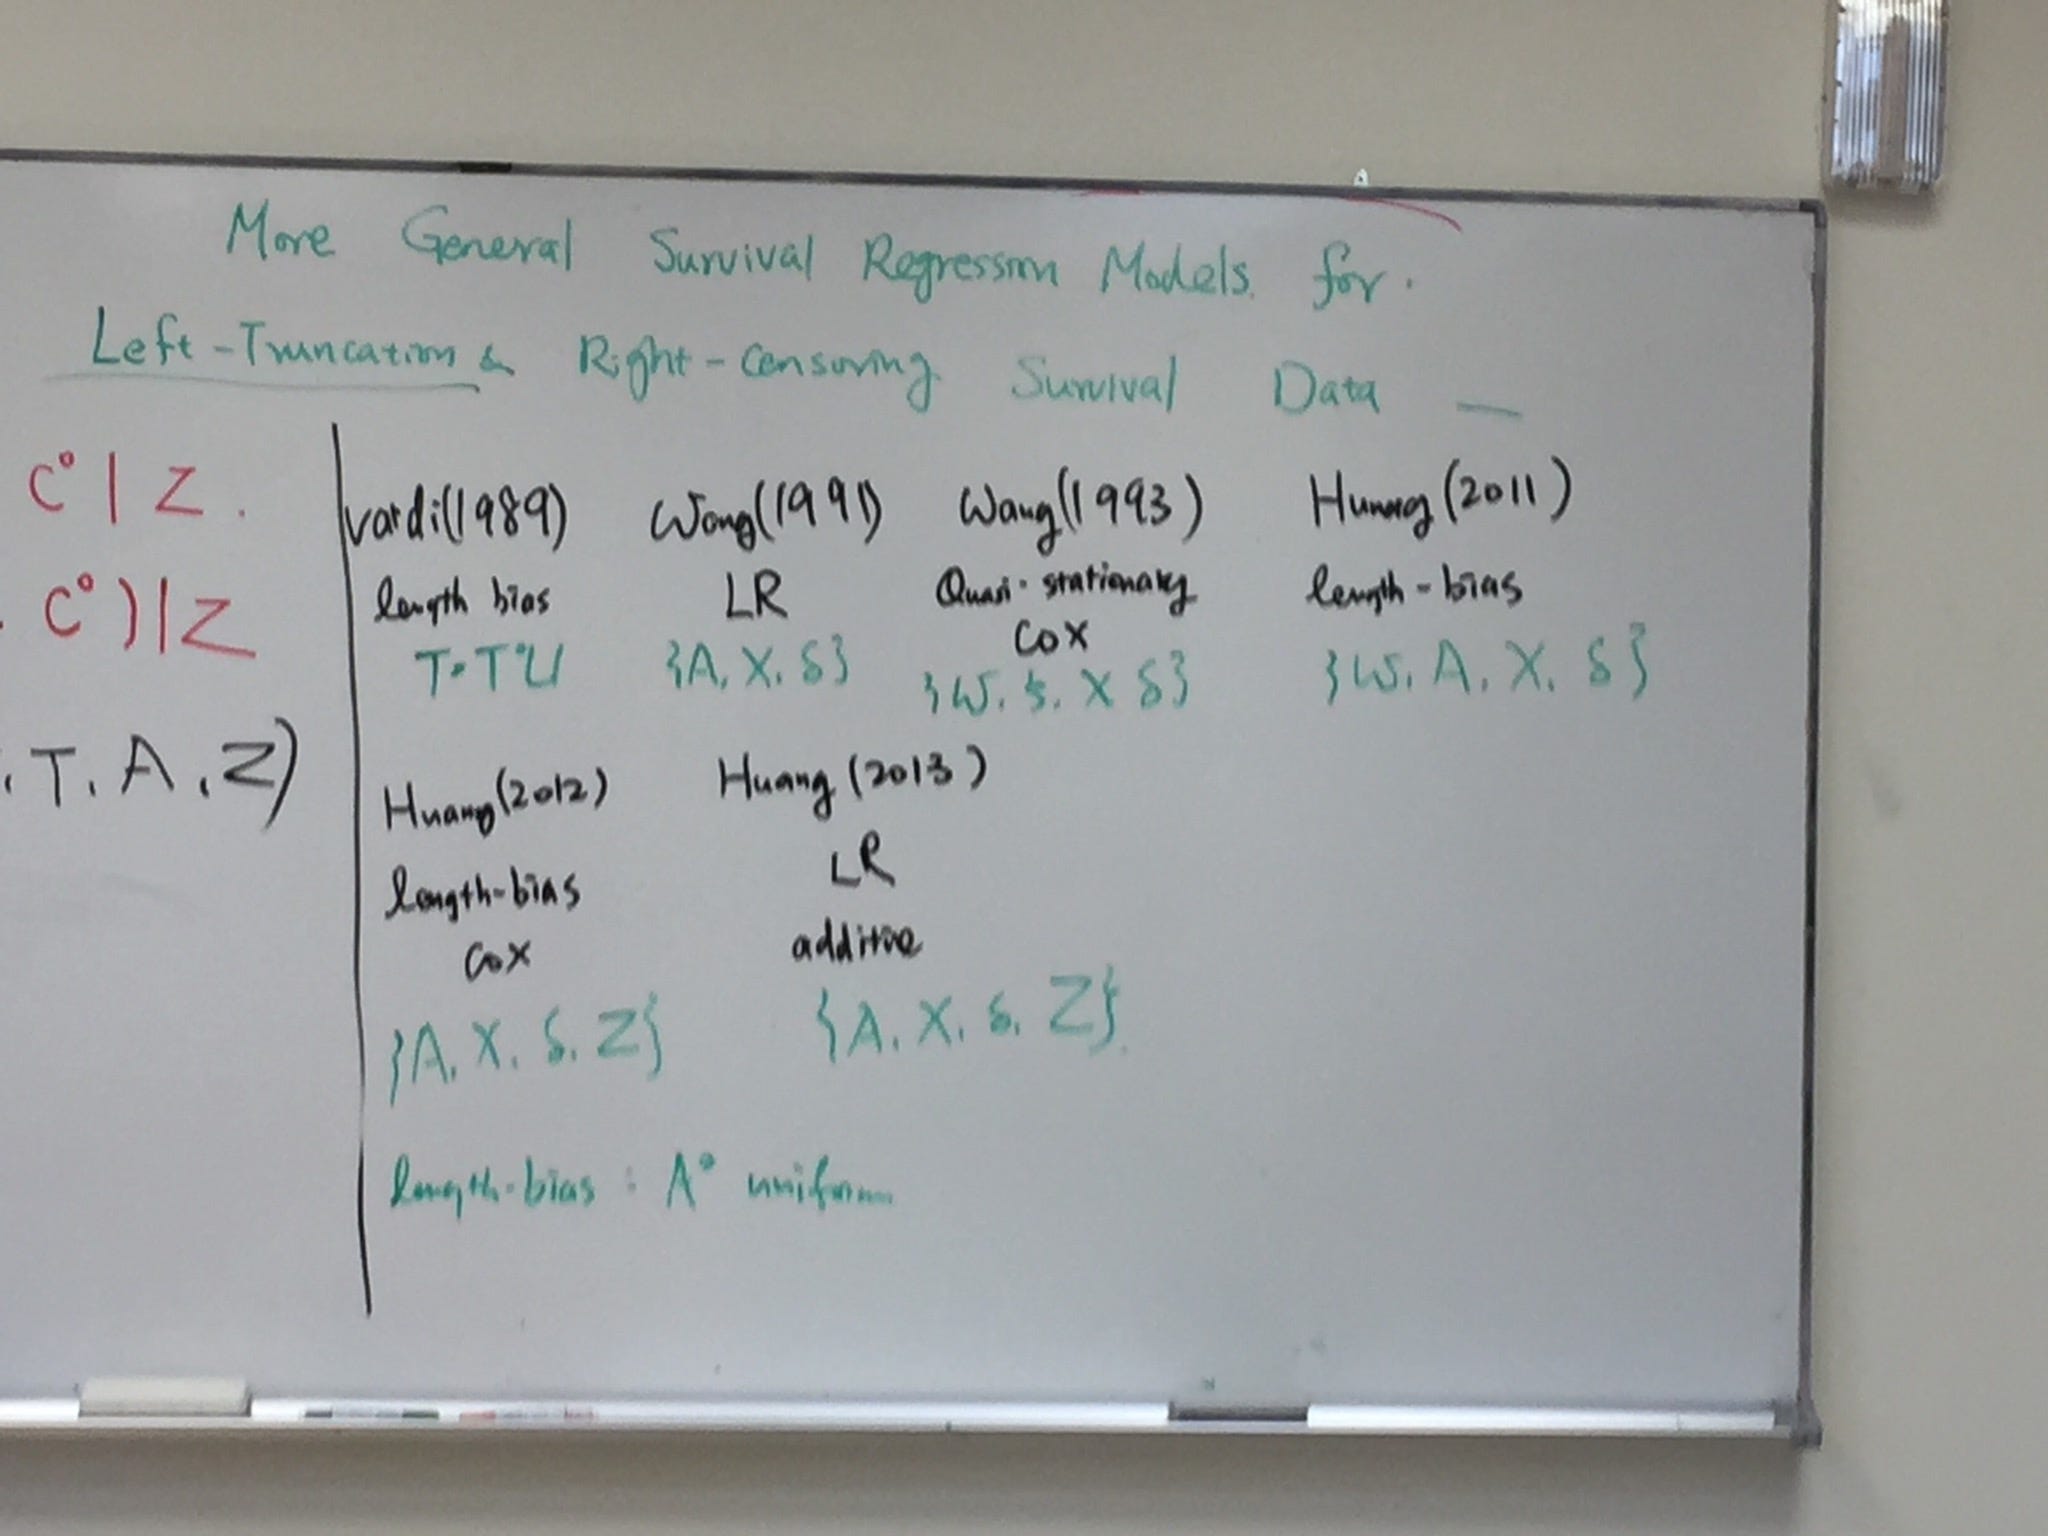 More General Survival Regression Models for.
Left-Truncation & Right-Censoring Survival Data —
C° | Z.
C°) | Z
. T. A. Z)
Vardi(1989) Wang(1991) Wang(1993) Huang(2011)
length bias LR Quasi-stationary length-bias
Cox
T=T°U {A. X. δ} {W. ξ. X δ} {W. A. X. δ}
Huang(2012) Huang(2013)
length-bias LR
Cox additive
{A. X. δ. Z} {A. X. δ. Z}.
length-bias : A° uniform